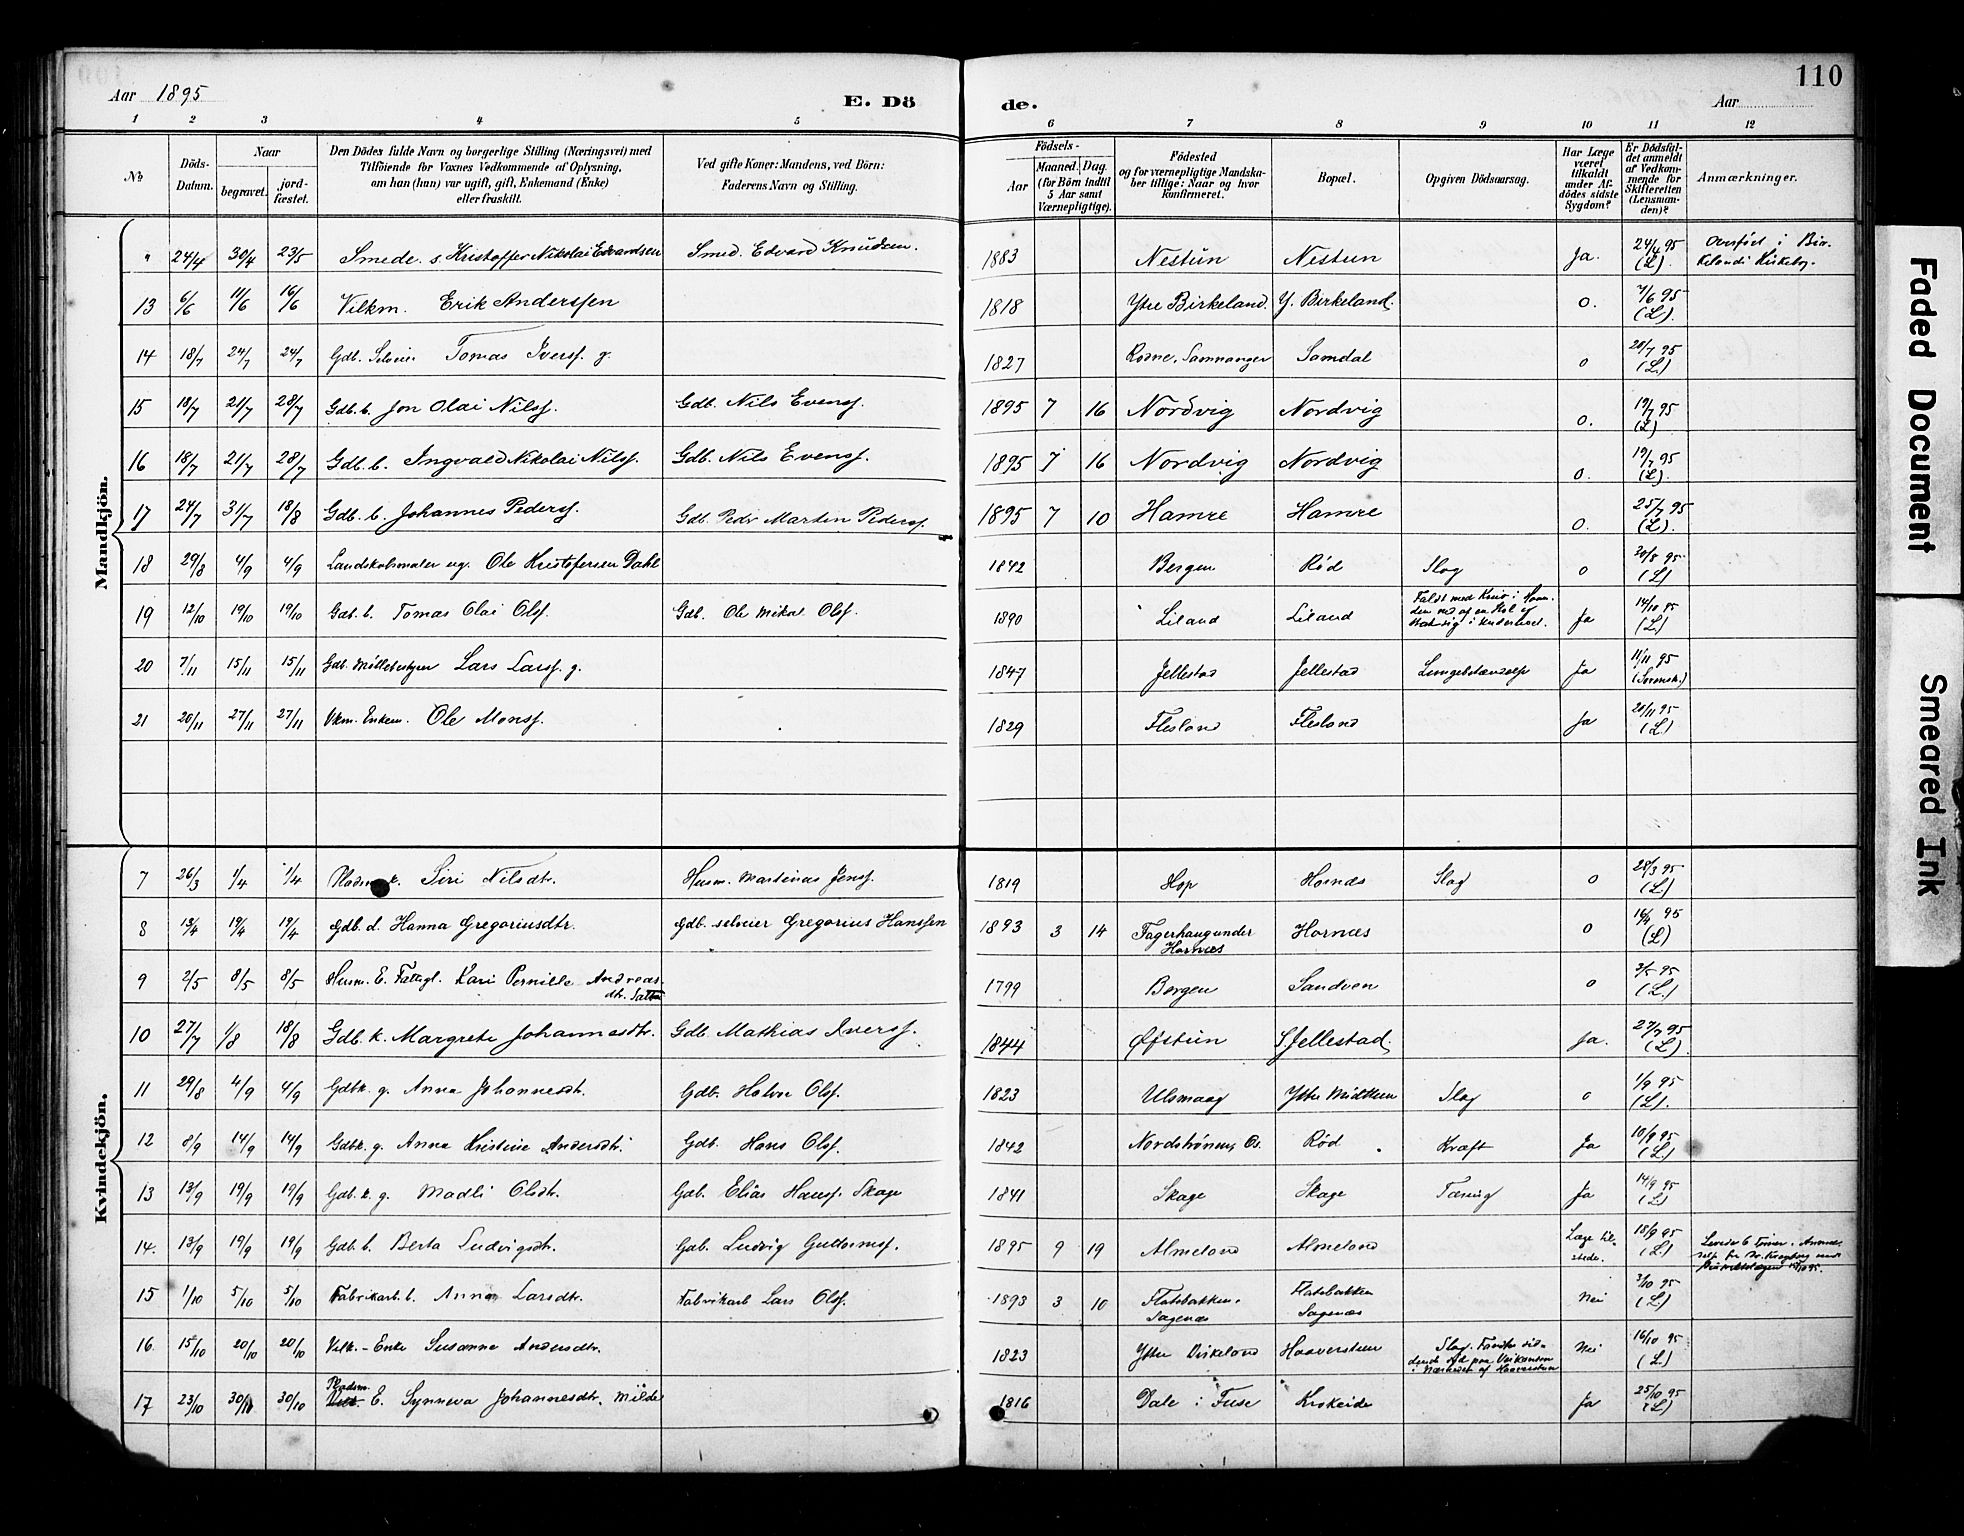 Aar 1895
E. Dö
de.
Aar
110
1 2 3 4 5 6 7 8 9 10 11 12
No
Döds-Datum.
Naar
begravet.
jord-fæstet.
Den Dödes fulde Navn og borgerlige Stilling (Næringsvei) med
Tilföiende for Voxnes Vedkommende af Oplysning,
om han (hun) var ugift, gift, Enkemand (Enke)
eller fraskilt.
Ved gifte Koner: Mandens, ved Börn:
Faderens Navn og Stilling.
Födsels-
Aar
Maaned. Dag.
(for Börn indtil
5 Aar samt
Værnepligtige).
Födested
og for værnepligtige Mandska-
ber tillige: Naar og hvor
konfirmeret.
Bopæl.
Opgiven Dödsaarsag.
Har Læge
været
tilkaldt
under Af-
dödes sidste
Sygdom?
Er Dödsfal-
det anmeldt
af Vedkom-
mende for
Skifteretten
(Lensman-
den)?
Anmærkninger.
Mandkjön.
" 24/4 30/4 23/5 Smede. s. Kristoffer Nikolai Edvardsen Smed. Edvard Knudsen. 1883 Nestun Nestun Ja. 24/4 95 (L).
13 6/6 11/6 16/6 Vilkm. Erik Anderssen 1818 Ytre Birkeland. Y. Birkeland. o. 7/6 95 (L).
14 18/7 24/7 24/7 Gdb. Selveier Tomas Iversf. g. 1827 Samnanger Samdal o 20/7 95 (L.)
15 18/7 21/7 28/7 Gdb. b. Jon Olai Nilsf. Gdb. Nils Evensf. 1895 7 16 Nordvig Nordvig o. 19/7 95 (L)
16 18/7 21/7 28/7 Gdb. b. Ingvald Nikolai Nilsf. Gdb. Nils Evensf. 1895 7 16 Nordvig Nordvig o. 19/7 95 (L).
17 24/7 31/7 18/8 Gdb. b. Johannes Pedersf. Gdb. Peder Martin Pedersf. 1895 7 10 Hamre Hamre o. 25/7 95 (L).
18 29/8 4/9 4/9 Landskabsmaler ug. Ole Kristofersen Dahl 1842 Bergen Rød Slag o 30/8 95 (L)
19 12/10 19/10 19/10 Gdb. b. Tomas Olai Olsf. Gdb. Ole Mikal Olsf. 1890 Liland Liland Faldt med Kniv i Haan-
den ned af en Stol og
stak sig i Underlivet. Ja 14/10 95 (L)
20 7/11 15/11 15/11 Gdb. Møllebestyrer Lars Larsf. g. 1847 Jellestad Jellestad Lungebetændelse Ja 11/11 95
21 20/11 27/11 27/11 Vkm. Enkem. Ole Monsf. 1829 Flesland Flesland Ja 20/11 95 (L.)
Kvindekjön.
7 26/3 1/4 1/4 Siri Nilsdtr. Husm. Martinus Jensf. 1819 Hop Hornæs Slag o 28/3 95 (L.)
8 13/4 19/4 19/4 Gdb. d. Hanna Gregoriusdtr. Gdb. selveier Gregorius Hanssen 1893 3 14 Fagerhaug under
Hornæs Hornæs o 16/4 95 (L)
9 2/5 8/5 8/5 Husm. E. Fattigl. Kari Pernille Andreas-
dtr. 1799 Bergen Sandven o 3/5 95 (L.)
10 27/7 1/8 18/8 Gdb. k. Margrete Johannesdtr. Gdb. Mathias Iversf. 1844 Øfstun S. Jellestad. Ja. 27/7 95 (L)
11 29/8 4/9 4/9 Gdbk. g. Anna Johannesdtr. Gdb. Halvor Olsf. 1823 Ulsmaag Ytre Midttun Slag o 1/9 95 (L).
12 8/9 14/9 14/9 Gdbk. g. Anna Kristine Andersdtr. Gdb. Hans Olsf. 1842 Nordstrønen, Os. Rød Kræft Ja 10/9 95 (L.)
13 13/9 19/9 19/9 Gdb. k. g. Madli Olsdtr. Gdb. Elias Hansf. Skage 1841 Skage Skage Tæring Ja 14/9 95 (L)
14. 13/9 19/9 19/9 Gdb. b. Berta Ludvigsdtr. Gdb. Ludvig Guttormsf. 1895 9 19 Almeland Almeland Læge til-
stede. 18/9 95 (L.) Levede 6 Timer.
15 1/10 5/10 5/10 Fabrikarb. b. Anna Larsdtr. Fabrikarb Lars Olsf. 1893 3 10 Flatabakken.
Sagenæs Flatabakken
Sagenæs Nei 3/10 95 (L.)
16. 15/10 20/10 20/10 Vilk. - Enke Susanna Andersdtr. 1823 Ytre Birkeland Haaversteen Slag. Fandtes sid-
dende død paa Veikanten
i Nærheden af Haaversteen Nei 16/10 95 (L.)
17 23/10 30/10 30/10 Pladsm. E. Synneva Johannesdtr. Milde 1816 Dale i Fuse Krokeide Ja 25/10 95 (L)
Faded Document
Smeared Ink